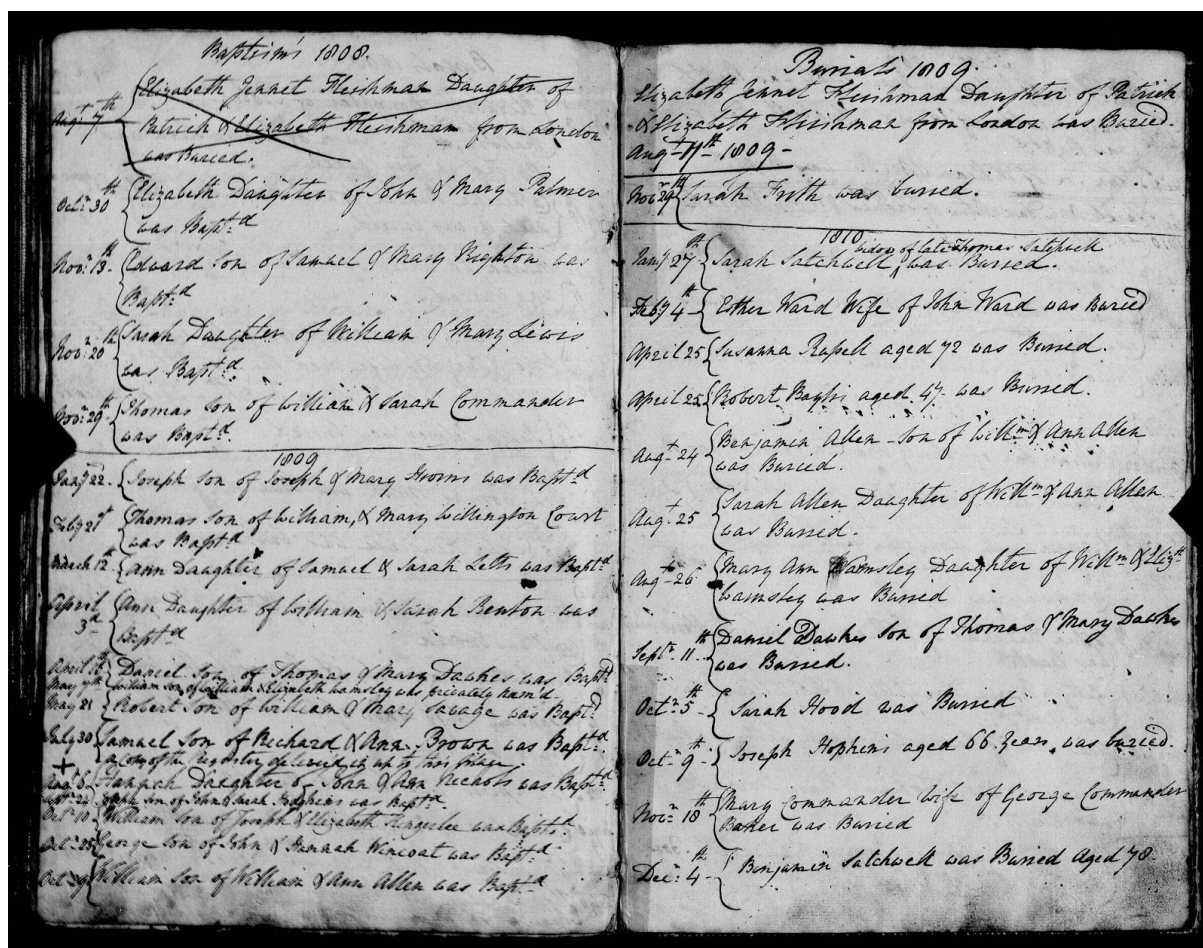 Baptism's 1808.
Augt. 7th Elizabeth Jennet Fleishman Daughter of
Patrick & Elizabeth Fleishman from London
was Buried.
Octr. 30th Elizabeth Daughter of John & Mary Palmer
was Bapt.d
Novr. 13th Edward Son of Samuel & Mary Nighton was
Bapt.d
Novr. 20th Sarah Daughter of William & Mary Lewis
was Bapt.d
Novr. 29th Thomas Son of William & Sarah Commander
was Bapt.d
1809
Jany 22. Joseph Son of Joseph & Mary was Bapt.d
Feby 21st Thomas Son of William, & Mary Willington Court
was Bapt.d
March 12th Ann Daughter of Samuel & Sarah Letts was Bapt.d
April Ann Daughter of William & Sarah Benton was
3d Bapt.d
April Daniel Son of Thomas & Mary Dawkes was Bapt.d
May 7th William Son of William & Elizabeth Wamsley was privately nam'd
May 21 Robert Son of William & Mary Savage was Bapt.d
July 30 Samuel Son of Richard & Ann Brown was Bapt.d
a Copy of the register, deliverd in up to this place.
Augt. 6 Hannah Daughter of John & Ann Nichols was Bapt.d
Sept. 24 Joseph Son of John & Sarah Hopkins was Bapt.d
Octr. 10 William Son of Joseph & Elizabeth was Bapt.d
Octr. 25 George Son of John & Hannah Wincoat was Bapt.d
Octr. 29 William Son of William & Ann Allen was Bapt.d
Burials 1809.
Elizabeth Jennet Fleishman Daughter of Patrick
& Elizabeth Fleishman from London was Buried.
Augt. 11th 1809
Novr. 29th Sarah Frith was buried.
1810
widow of late Thomas Satchwell
Jany 27th Sarah Satchwell ^ was Buried.
Feby 4th Esther Ward Wife of John Ward was Buried
April 25 Susanna Rasell aged 72 was Buried.
April 25 Robert aged 47. was Buried.
Augt. 24 Benjamin Allen Son of Willm & Ann Allen
was Buried.
Augt. 25 Sarah Allen Daughter of Willm & Ann Allen
was Buried.
Augt. 26 Mary Ann Wamsley Daughter of Willm & Elizth
Wamsley was Buried
Septr. 11th Daniel Dawkes Son of Thomas & Mary Dawkes
was Buried.
Octr. 5th Sarah Hood was Buried
Octr. 9th Joseph Hopkins aged 66 Years, was buried.
Novr. 18th Mary Commander wife of George Commander
Baker was Buried
Decr. 4th Benjamin Satchwell was Buried Aged 78.